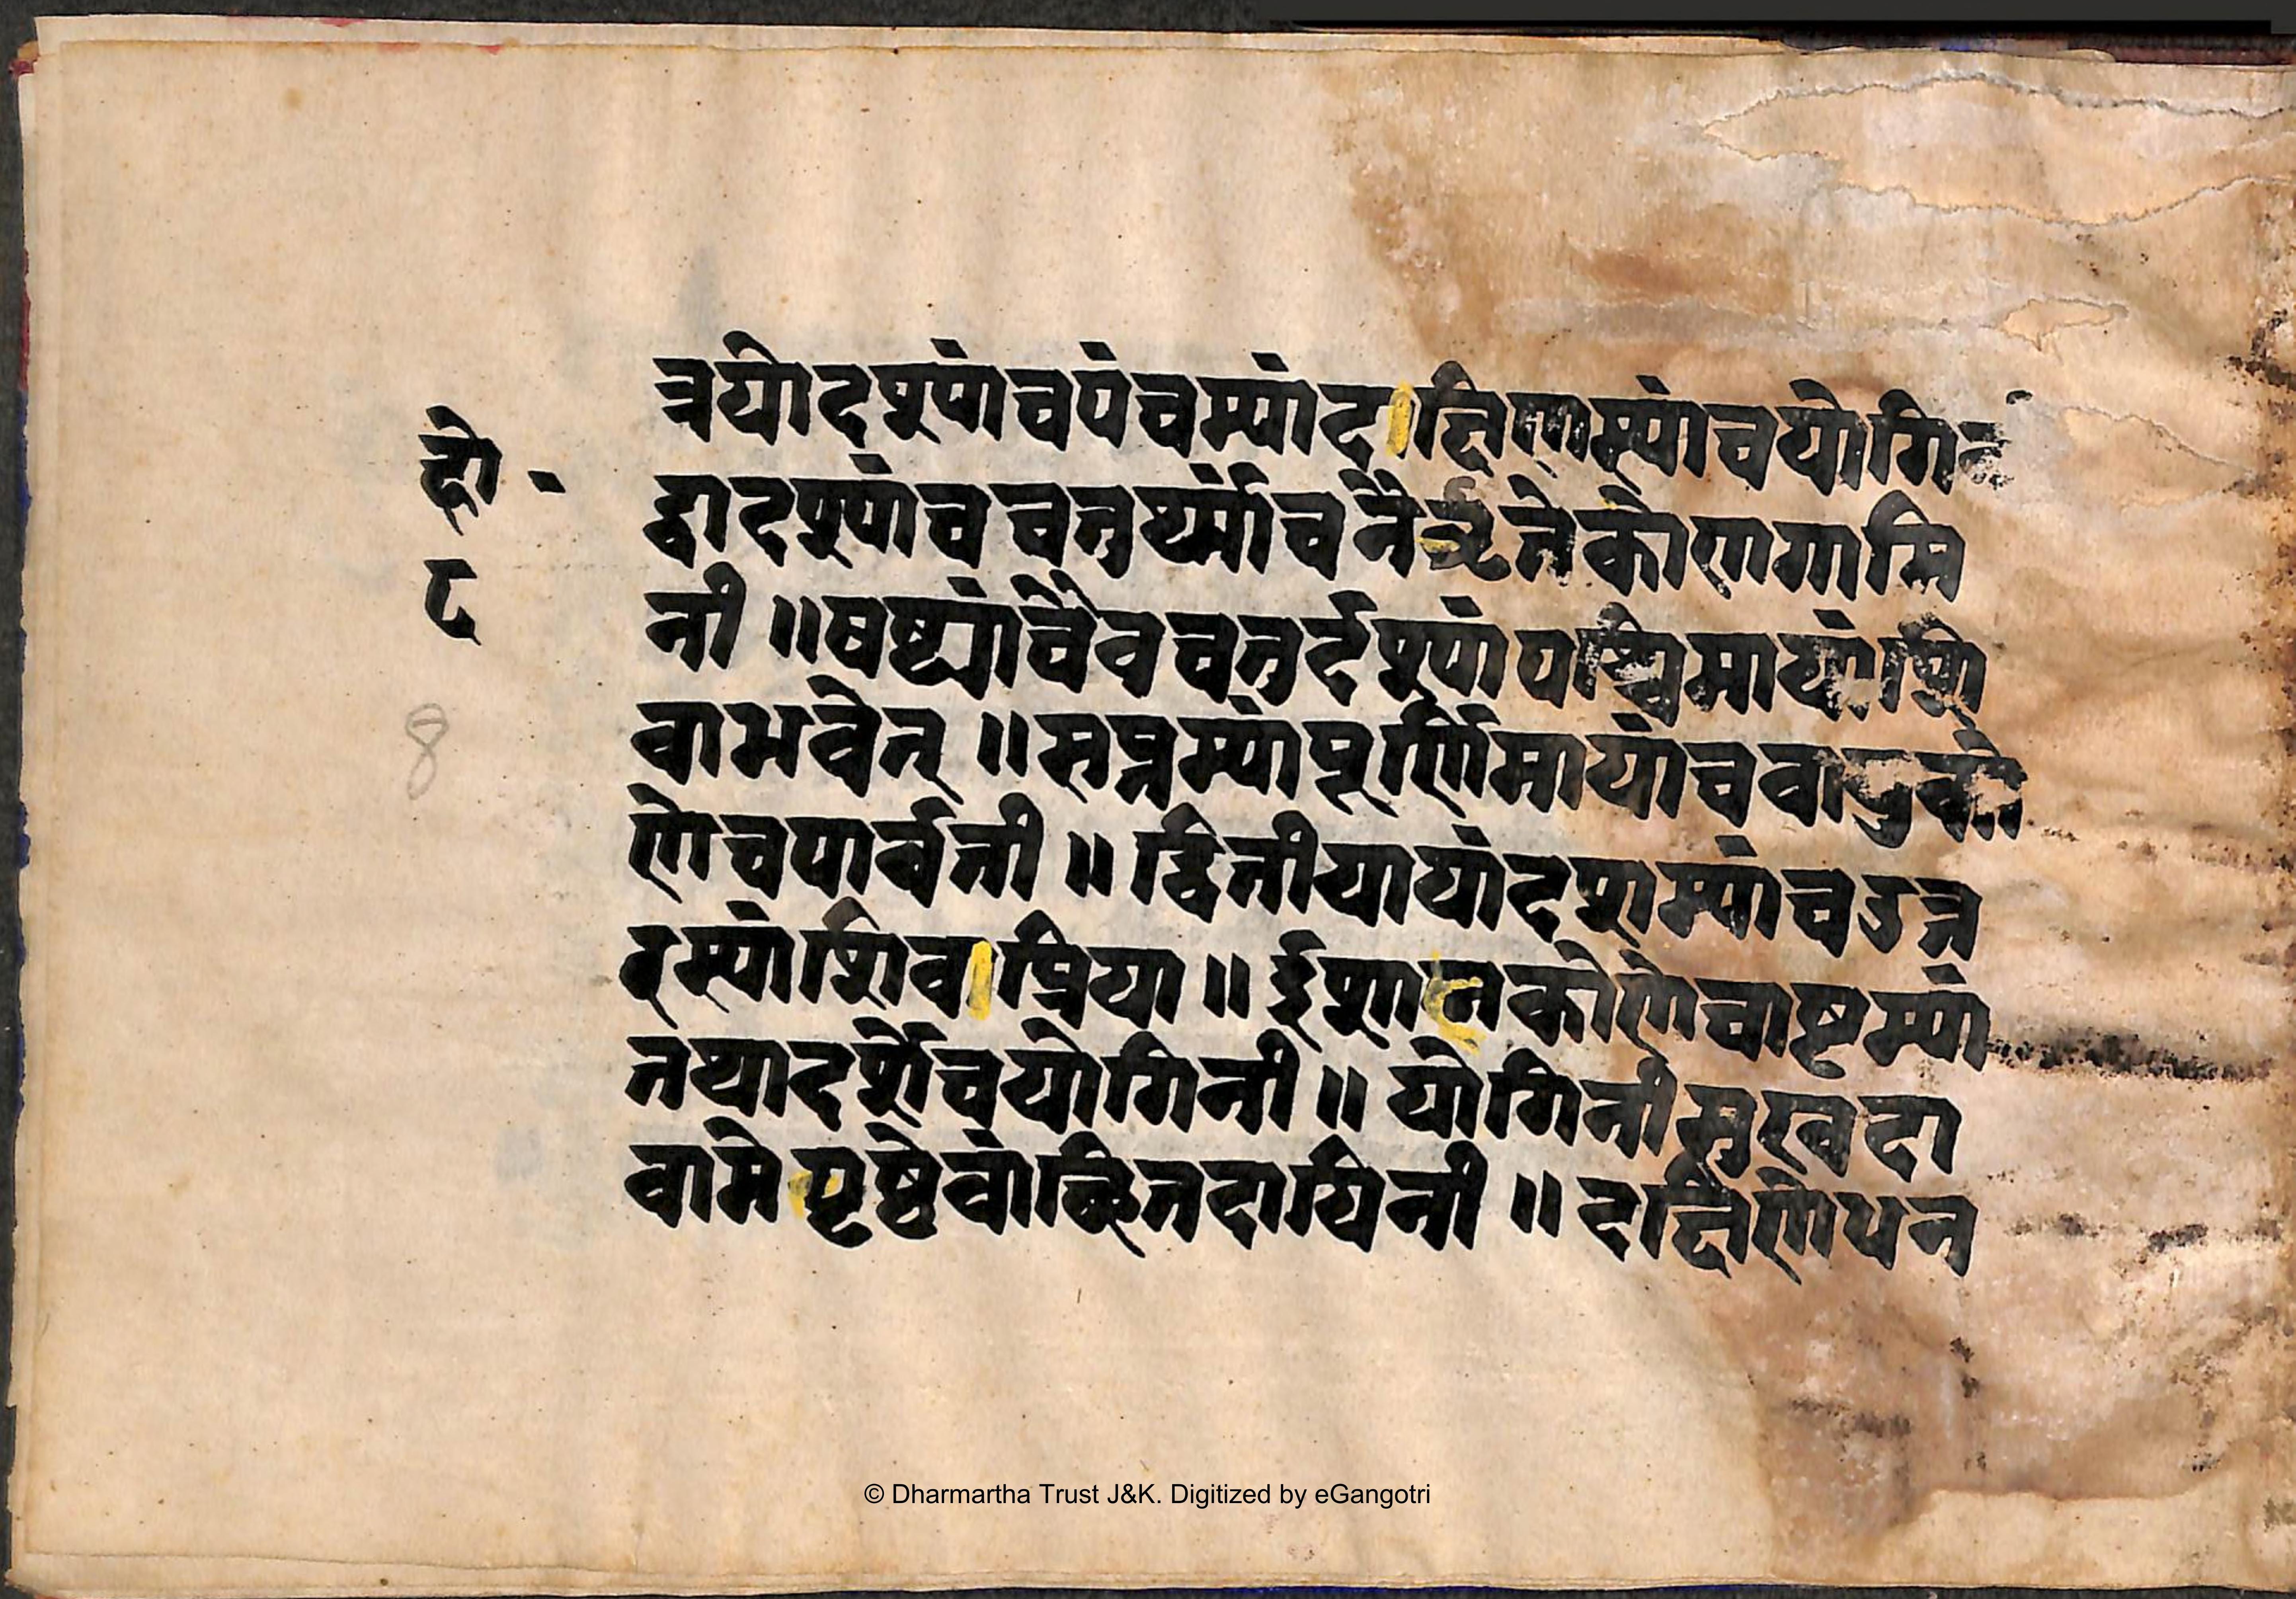 त्रयोदश्यांचपंचम्यांदक्षिणस्यांचयोगिनी
हो -
द्वादश्यांचचतुर्थ्यांचनैरृतेकोणगामि
८
नी ॥षष्ट्यांचैवचतुर्दश्यांपश्चिमायांशि
8
वाभवेत् ॥सप्तम्यांपूर्णिमायांचवायुको
णेचपार्वती ॥ द्वितीयायांदशम्यांचउत्त
रस्यांशिवप्रिया ॥ ईशानकोणेचाष्टम्यां
तथादर्शेचयोगिनी ॥ योगिनीसुखदा
वामेपृष्ठेवांछितदायिनी ॥ दक्षिणेधन
© Dharmartha Trust J&K. Digitized by eGangotri